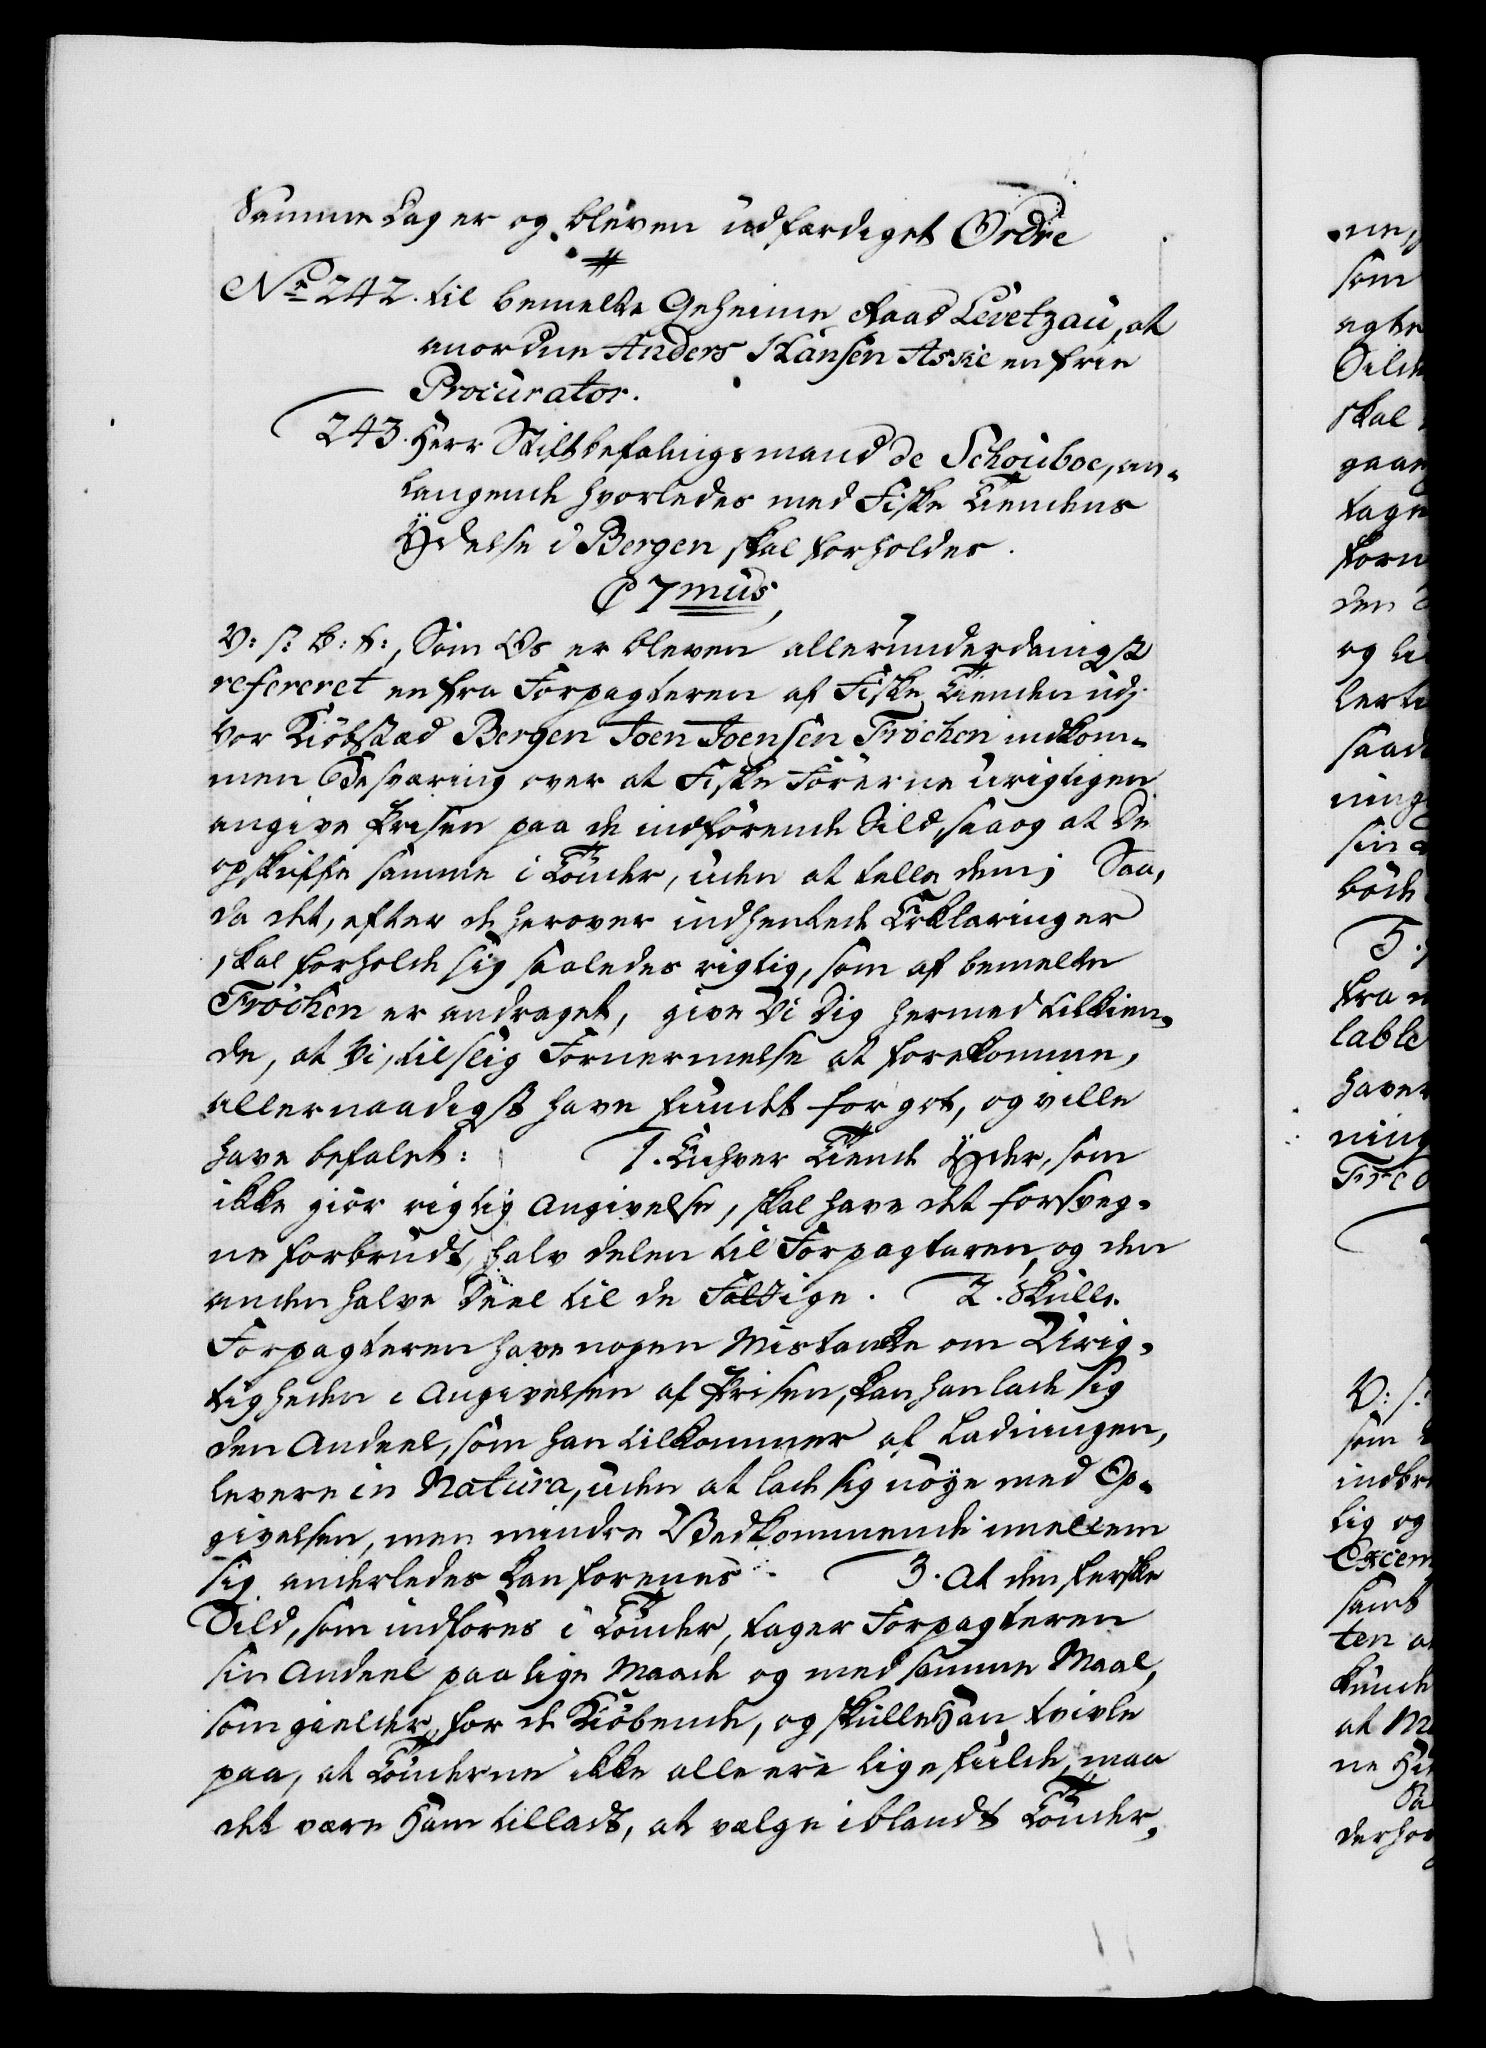 Samme Dag er og bleven udfærdiget Ordre
No 242. til bemelte Geheime Raad Levetzau, at
anordne Anders Hansen Askie en frie
Procurator.
243. Herr Stiftbefalingsmand de Schouboe, an-
langende hvorledes med Fiske Tiendens
Ydelse i Bergen skal forholdes.
C 7mus,
V: S: B: t:, Som Os er bleven allerunderdanigst
refereret en fra Forpagteren af Fiske Tienden udj
vor Kiöbstæd Bergen Joen Joensen Fröchen indkom-
men Besværing over at Fiske Förerne urigtigen
angive Prisen paa de indförende Sild, saa og at De
opskuffe samme i Tönder, uden at telle dem; Saa,
da det, efter de herover indhentede Erklæringer
skal forholde sig saaledes rigtig, som af bemelte
Fröchen er andraget, give Vi Dig hermed tilkien-
de, at Vi, til slig Fornermelse at forekomme,
allernaadigst have fundet for got, og ville
have befalet: 1. Enhver Tiende Yder, som
ikke giör rigtig Angivelse, skal have det forsveg-
ne forbrudt, halv delen til Forpagteren, og den
anden halve Deel til de Fattige. 2. Skulle
Forpagteren have nogen Mistanke om Urig-
tigheden i Angivelsen af Prisen, kan han lade sig
den Andeel, som han tilkommer af Ladningen,
levere in Natura, uden at lade sig nöye med Op-
givelsen, men mindre Vedkommende imellem
sig anderledes kan forenes. 3. At den ferske
Sild, som indföres i Tönder, tager Forpagteren
sin Andeel paa lige Maade og med samme Maal,
som gielder for de Kiöbende, og skulle Han tvivle
paa, at Tönderne ikke alle ere lige fulde, maa
det være Ham tilladt, at vælge iblandt Tönder-